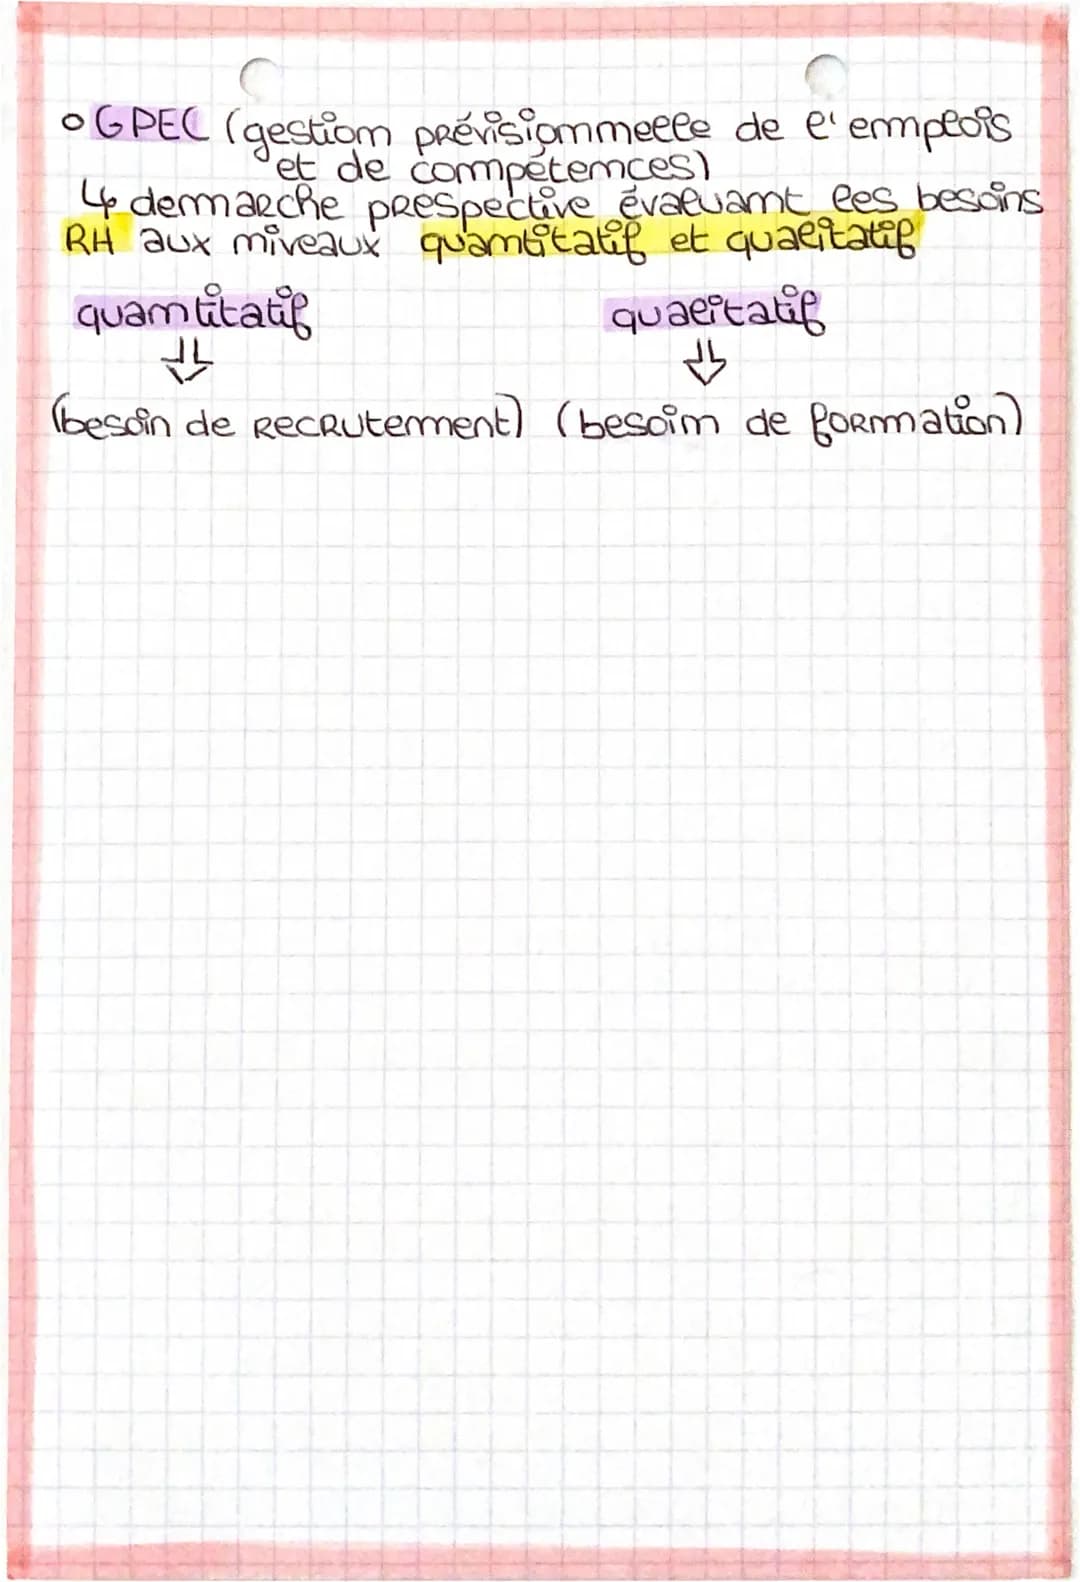 o GPEC (gestion prévisionnelle de l'emplois
et de compétences)
↳ demarche prespective évaluant les besoins
RH aux niveaux quantitatif et qualitatif
quantitatif qualitatif
⇓ ⇓
(besoin de recrutement) (besoin de formation)